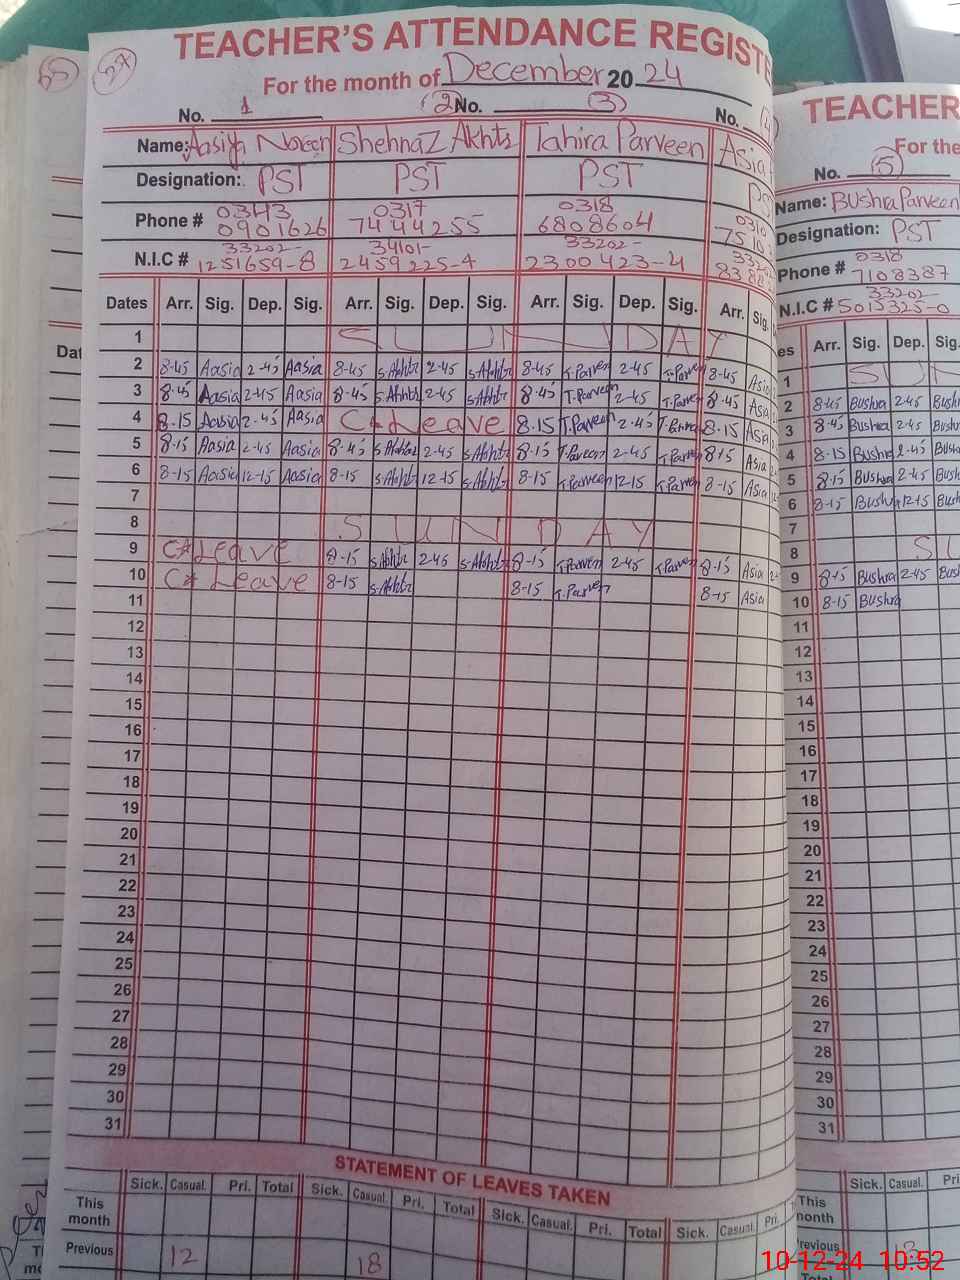 TEACHER'S ATTENDANCE REGISTE
For the month of December 20 24
No. 1 (2) No. (3) No. (4)
Name: Aasiya Noreen Shehnaz Akhtr Tahira Parveen Asia
Designation: PST PST PST PS
Phone # 0343 0901626 0317 7444255 0318 6808604 0310
N.I.C # 33202- 1251659-8 34101- 2459225-4 33202- 2300423-4
Dates Arr. Sig. Dep. Sig. Arr. Sig. Dep. Sig. Arr. Sig. Dep. Sig. Arr. Sig.
1 SUNDAY
2 8-45 Aasia 2-45 Aasia 8-45 S.Akhtr 2-45 S.Akhtr 8-45 T.Parveen 2-45 T.Parven 8-45 Asia
3 8-45 Aasia 2-45 Aasia 8-45 S.Akhtr 2-45 S.Akhtr 8-45 T.Parveen 2-45 T.Parven 8-45 Asia
4 8-15 Aasia 2-45 Aasia C*Leave 8-15 T.Parveen 2-45 T.Parven 8-15 Asia
5 8-15 Aasia 2-45 Aasia 8-45 S.Akhtr 2-45 S.Akhtr 8-15 T.Parveen 2-45 T.Parven 8-15 Asia
6 8-15 Aasia 12-15 Aasia 8-15 S.Akhtr 12-15 S.Akhtr 8-15 T.Parveen 12-15 T.Parven 8-15 Asia
7
8 SUNDAY
9 C*Leave 8-15 S.Akhtr 2-45 S.Akhtr 8-15 T.Parveen 2-45 T.Parven 8-15 Asia
10 C* Leave 8-15 S.Akhtr 8-15 T.Parven 8-15 Asia
11
12
13
14
15
16
17
18
19
20
21
22
23
24
25
26
27
28
29
30
31
STATEMENT OF LEAVES TAKEN
Sick. Casual. Pri. Total Sick. Casual. Pri. Total Sick. Casual. Pri. Total Sick. Casual. Pri.
This month
Previous 12 18
TEACHER
For the
No. (5)
Name: Bushra Parveen
Designation: PST
Phone # 0318 7108387
N.I.C # 33202- 5013325-0
es Arr. Sig. Dep. Sig.
1 SUN
2 8-45 Bushra 2-45 Bush
3 8-45 Bushra 2-45 Bush
4 8-15 Bushra 2-45 Bush
5 8-15 Bushra 2-45 Bush
6 8-15 Bushra 12-15 Bush
7
8 SU
9 8-15 Bushra 2-45 Bush
10 8-15 Bushra
11
12
13
14
15
16
17
18
19
20
21
22
23
24
25
26
27
28
29
30
31
Sick. Casual. Pri
This month
revious
10-12-24 10:52